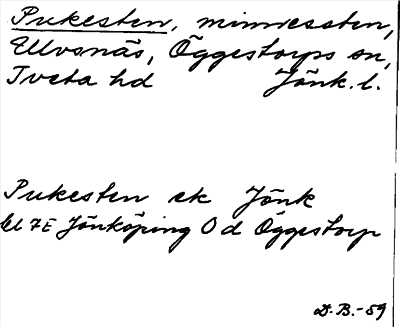 Pukesten, minnessten,
Ulvsnäs, Öggestorps sn,
Tveta hd Jönk. l.
Pukesten ek Jönk
bl 7E Jönköping Od Öggestorp
D.B.-59